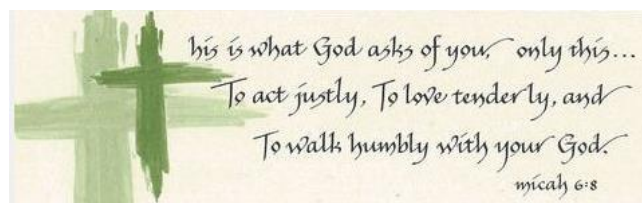 This is what God asks of you, only this...
To act justly, To love tenderly, and
To walk humbly with your God.
micah 6:8